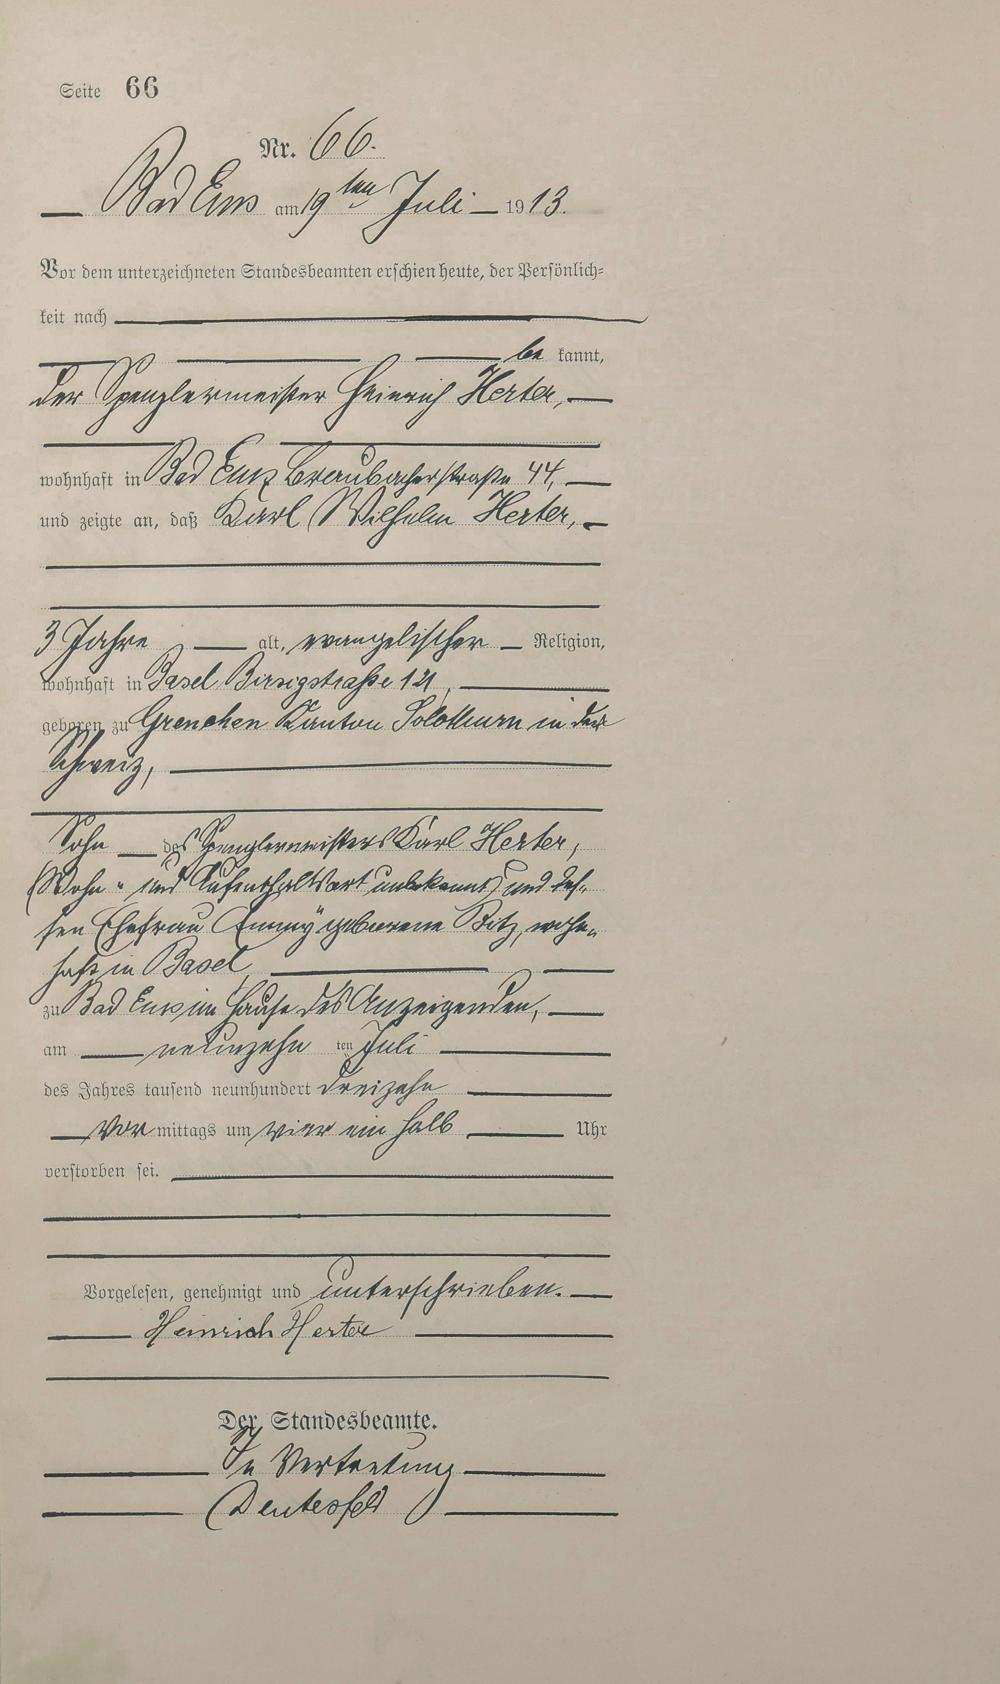 Seite 66
Nr. 66.
Bad Ems am 19ten Juli 1913.
Vor dem unterzeichneten Standesbeamten erschien heute, der Persönlich=
keit nach
be kannt,
der Spenglermeister Heinrich Herter,
wohnhaft in Bad Ems Braubacherstraße 44,
und zeigte an, daß Karl Wilhelm Herter,
3 Jahre alt, evangelischer Religion,
wohnhaft in Basel Birsigstraße 121,
geboren zu Grenchen Kanton Solothurn in der
Schweiz,
Sohn des Spenglermeisters Karl Herter,
(Wohn- und Aufenthaltsort unbekannt) und des-
sen Ehefrau Emmy geborene Bitz, wohn-
haft in Basel,
zu Bad Ems im Hause des Anzeigenden,
am neunzehn ten Juli
des Jahres tausend neunhundert dreizehn
Vor mittags um vier ein halb Uhr
verstorben sei.
Vorgelesen, genehmigt und unterschrieben.
Heinrich Herter
Der Standesbeamte.
In Vertretung